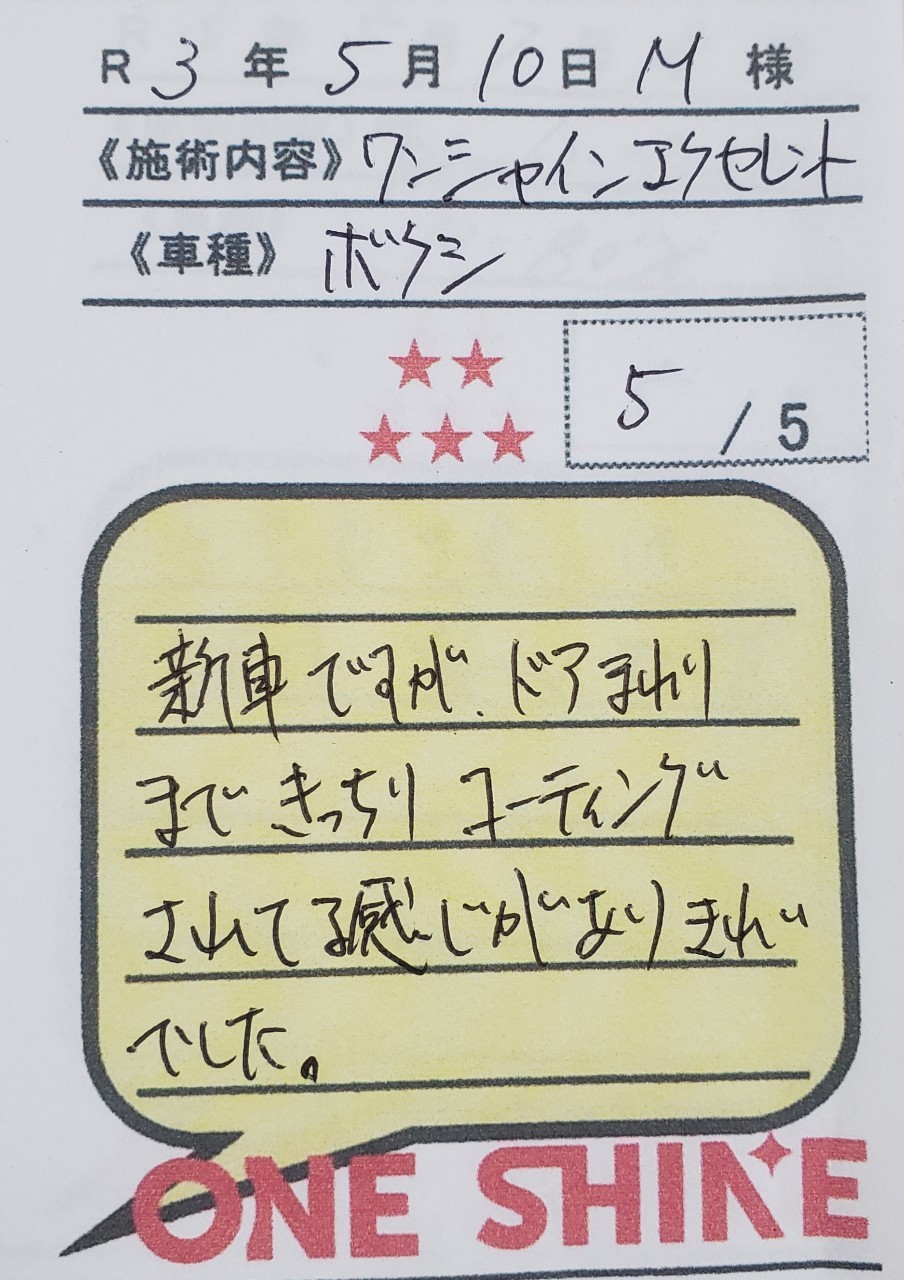 R 3 年 5 月 10 日 M 様
《施術内容》ワンシャインエクセレント
《車種》ボクシー
5 / 5
新車ですが、ドアまわり
まできっちりコーティング
されてる感じがありきれい
でした。
ONE SHINE